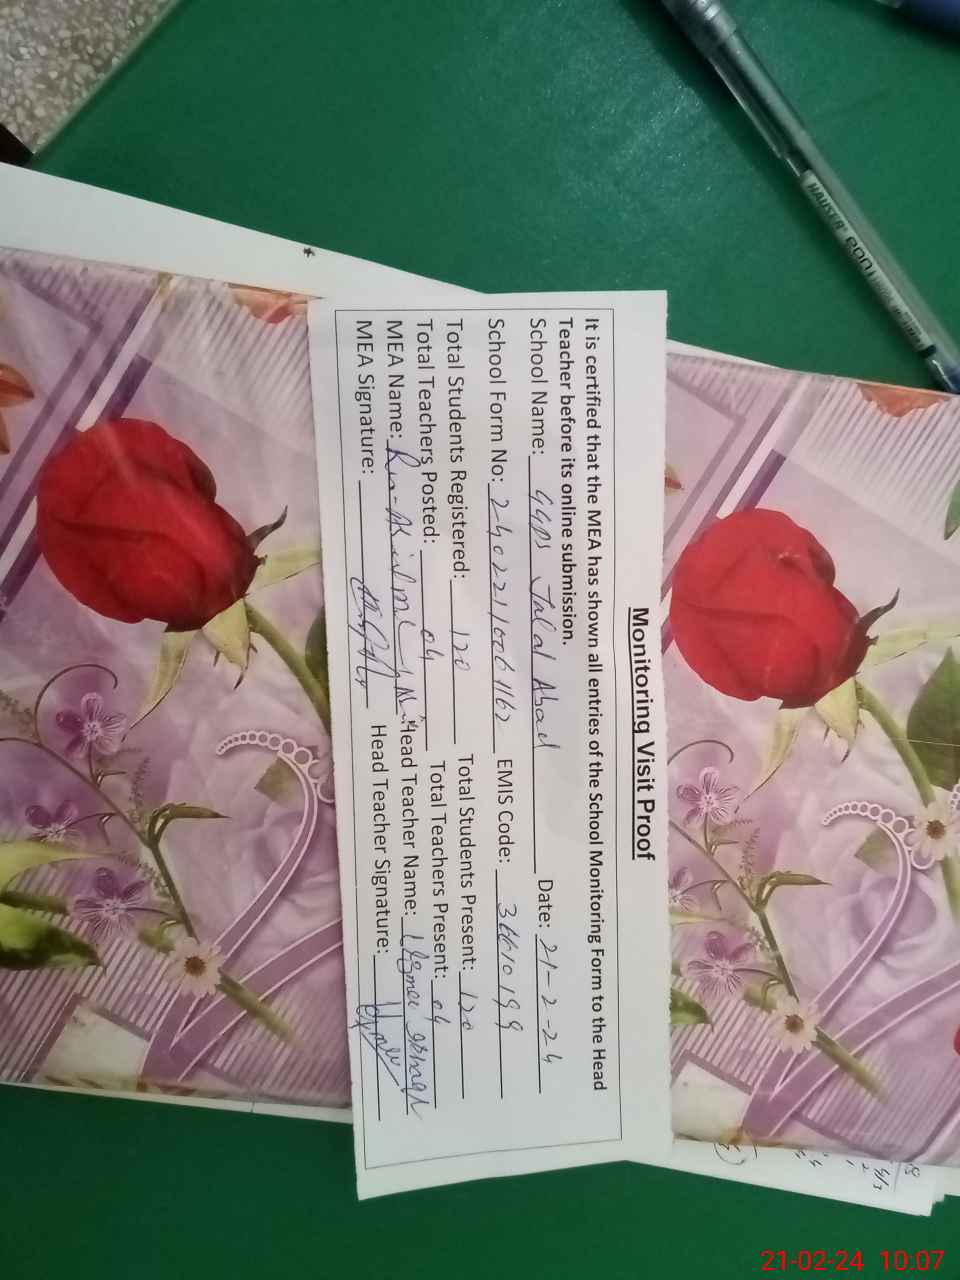 Monitoring Visit Proof
It is certified that the MEA has shown all entries of the School Monitoring Form to the Head
Teacher before its online submission.
School Name: GGPS Jalal Abad Date: 21-2-24
School Form No: 2402210061162 EMIS Code: 36610199
Total Students Registered: 120 Total Students Present: 120
Total Teachers Posted: 04 Total Teachers Present: 04
MEA Name: Head Teacher Name:
MEA Signature: Head Teacher Signature:
HAUSER eon
21-02-24 10:07